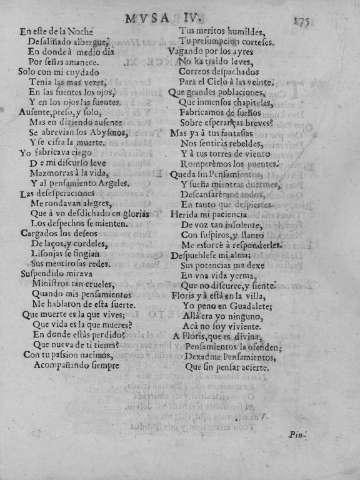 MVSA IV.
175
En este de la Noche
Desaliñado albergue,
En donde à medio dia
Por señas amanece.
Solo con mi cuydado
Tenia las mas vezes,
En las fuentes los ojos,
Y en los ojos las fuentes.
Ausente, preso, y solo,
Mas en diziendo ausente
Se abrevian los Abysmos,
Y se cifra la muerte.
Yo fabricava ciego
De mi discurso leve
Mazmorras à la vida,
Y al pensamiento Argeles.
Las desesperaciones
Me rondavan alegres,
Que à vn desdichado en glorias
Los despechos se mienten.
Cargados los deseos
De laços, y cordeles,
Lisonjas se fingian
Sus mentirosas redes.
Suspendido mirava
Ministros tan crueles,
Quando mis pensamientos
Me hablaron de esta suerte.
Que muerte es la que vives;
Que vida es la que mueres?
En donde estàs perdido?
Que nueva de ti tienes?
Con tu passion nacimos,
Acompañando siempre
Tus meritos humildes,
Tu presumpcion corteses.
Vagando por los ayres
No ha traido leves,
Correos despachados
Para el Cielo à las veinte.
Que grandes poblaciones,
Que inmensos chapiteles,
Fabricamos de sueños
Sobre esperanças breves?
Mas ya à tus fantasias
Nos sentiràs rebeldes,
Y à tus torres de viento
Romperèmos los puentes.
Queda sin Pensamientos,
Y sueña mientras duermes,
Descansarèmos todos,
En tanto que despiertes.
Herida mi paciencia
De voz tan insolente,
Con suspiros, y llanto
Me esforcè à responderles.
Despueblese mi alma;
Sus potencias me dexe
En vna vida yerma,
Que no discurre, y siente.
Floris yà està en la villa,
Yo peno en Guadalete;
Allà era yo ninguno,
Acà no soy viviente.
A Floris, que es divina,
Pensamientos la ofenden;
Dexadme Pensamientos,
Que sin pensar acierte.
Pin-